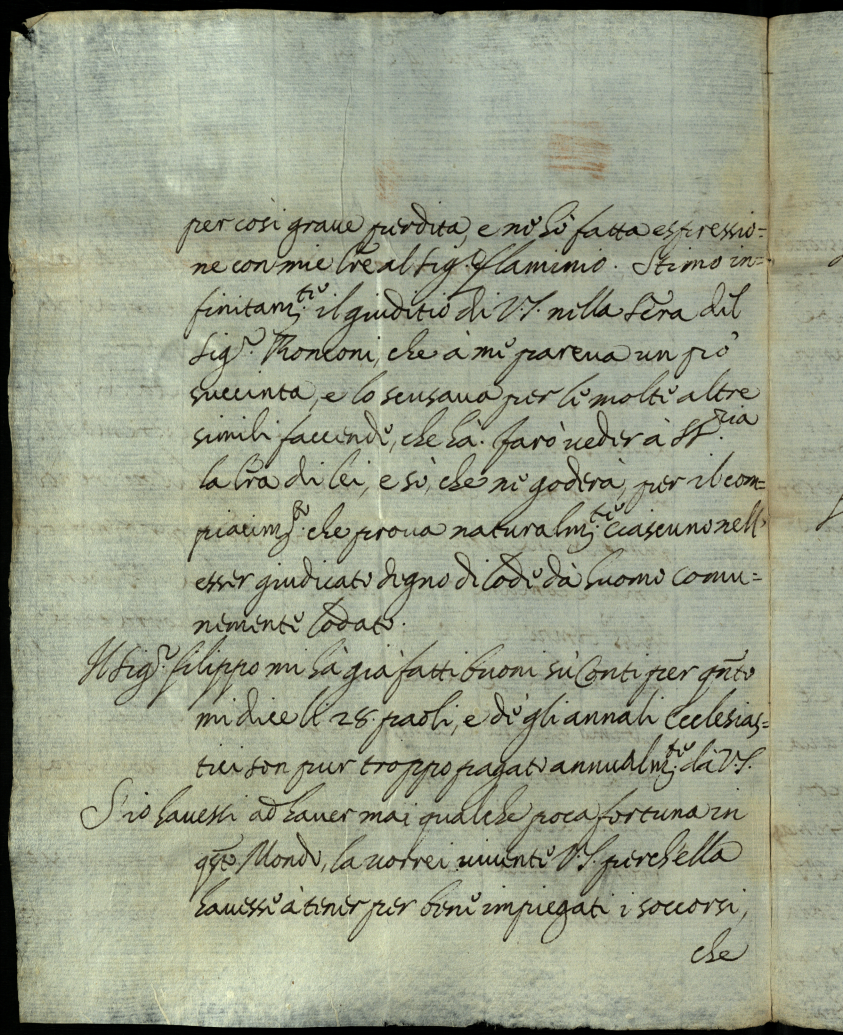 per così graue perdita, e ne hò fatta espressio=
ne con mie lre al Sig.r Flaminio. Stimo in=
finitam.te il giuditio di VS. nella lra del
Sig.r Ronconi, che à me pareua un pò
succinta, e lo scusaua per le molte altre
simili faccende, che hà. Farò ueder à
la lra di lei, e sò, che ne goderà, per il com=
piacim.to che proua naturalm.te ciascuno nell'
esser giudicato degno di lode da huomo comu=
nemente lodato.
Il Sig.r Filippo mi hà già fatti buoni sù Conti per qnto
mi dice li 28. paoli, e de gli annali Ecclesias=
tici son pur troppo pagato annualm.te da V.S.
S'io hauessi ad hauer mai qualche poca fortuna in
qsto Mondo, la uorrei uiuente V.S. perch'ella
hauesse à tener per bene impiegati i soccorsi,
che